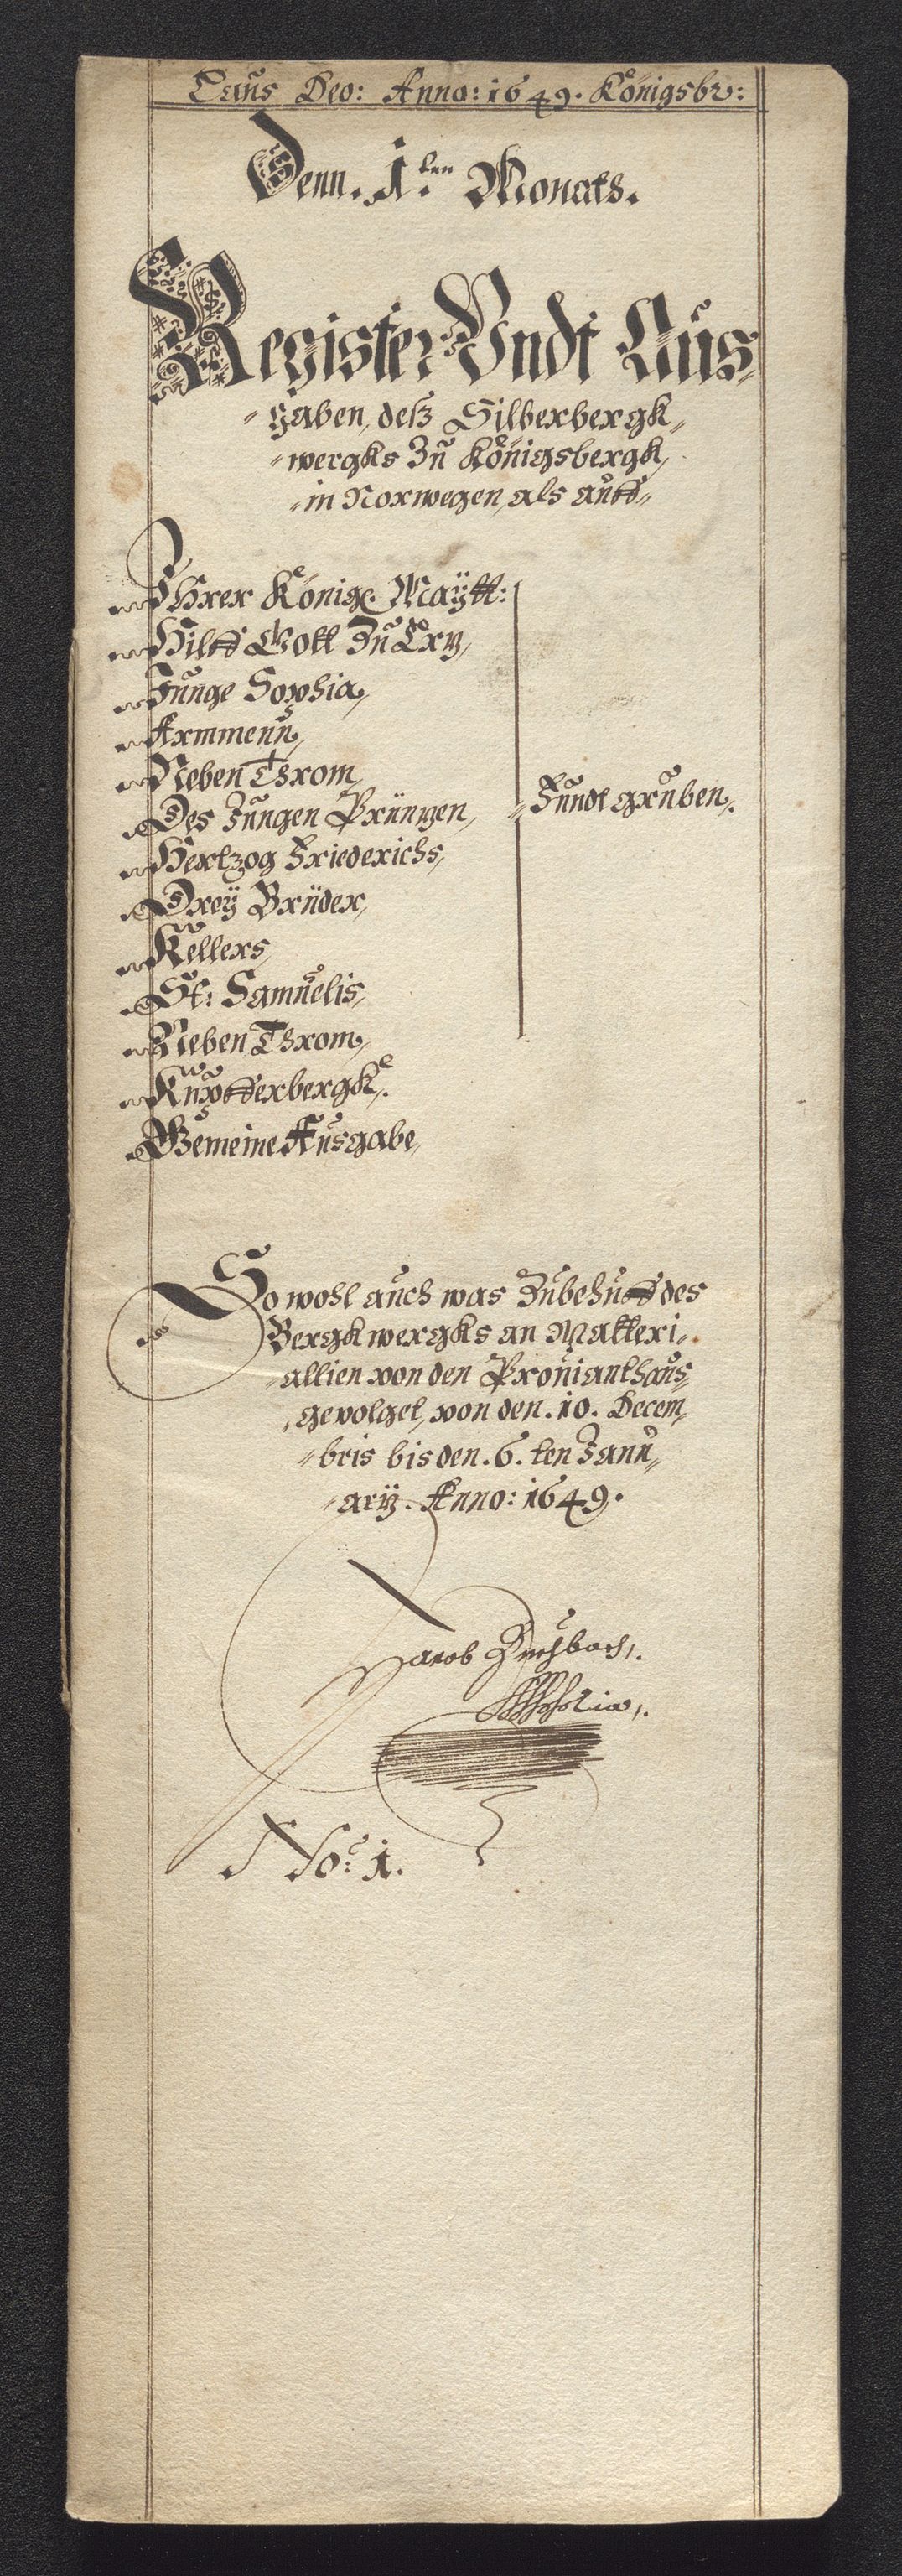 Laus Deo: Anno: 1649. Königsbr:
Denn. 1.ten Monats.
Register Vndt Aus,,
,,gaben, deß Silberbergk,,
,,wergks Zu Königsbergk,
,,in Norwegen, als auff,,
Ihrer Königl. Maÿtt:
Hilff Gott Zu Ertz,
Junge Sophia,
Armmenn,
Neben Throm,
Des Jungen Printzen,
,,Fundt gruben,.
Hertzog Friederichs,
Dreÿ Brüder,
Kellers,
St: Samuelis,
Neben Throm,
Kupfferbergk,.
Gemeine Ausgabe,
So wohl auch was Zubehuff des
Bergkwergks an Matteri,,
,,allien von den Prouianthaus,,
gevolget, von den. 10. Decem,,
,,bris bis den. 6. ten Janu,,
,,arÿ. Anno: 1649.
Jacob
No: 1.